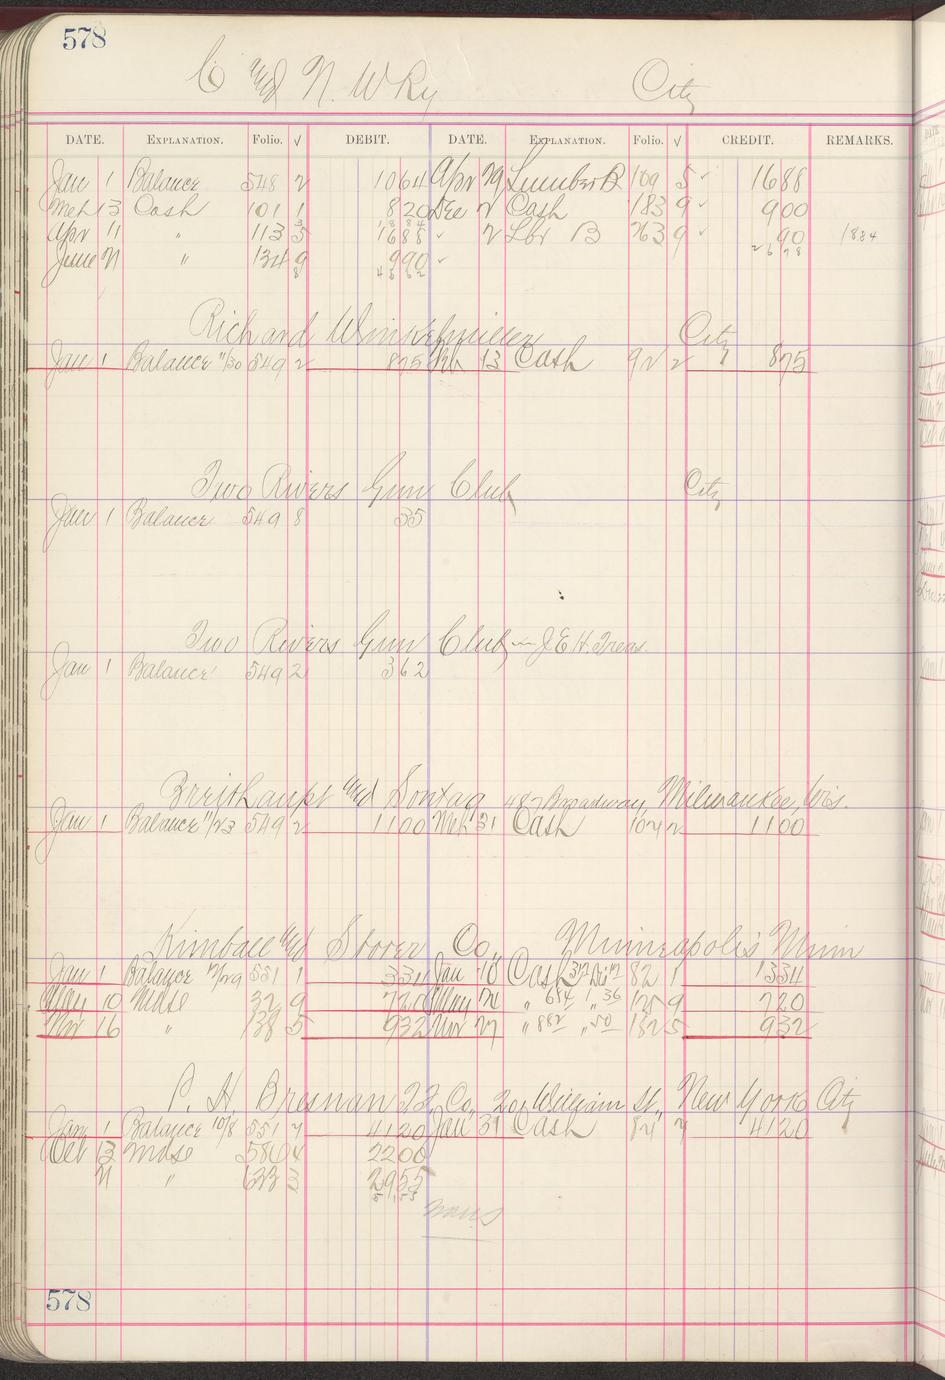 578
C and N. W Ry City
DATE. EXPLANATION. Folio. √ DEBIT. DATE. EXPLANATION. Folio. √ CREDIT. REMARKS.
Jan 1 Balance 548 2 1064 Apr 29 Lumber B 109 5 ✓ 1688
Mch 13 Cash 101 1 820 Dec 2 Cash 183 9 ✓ 900
Apr 11 " 113 5 1688 ✓ 2 Lbr B 263 9 ✓ 90 1884
June 21 " 134 9 990 ✓ 2678
4662
Richard Winkelmiller City
Jan 1 Balance 11/30 549 2 875 Feb 13 Cash 92 2 875
Two Rivers Gun Club City
Jan 1 Balance 549 8 35
Two Rivers Gun Club J.E.H. Treas.
Jan 1 Balance 549 2 362
Breithaupt and Sontag 487 Broadway, Milwaukee, Wis.
Jan 1 Balance 11/23 549 2 1100 Mch 31 Cash 104 2 1100
Kimball and Storer Co., Minneapolis Minn
Jan 1 Balance 12/29 551 1 334 Jan 10 Cash 82 1 334
May 10 Mdse 32 9 720 May 24 " 684 " 36 125 9 720
Nov 16 " 138 5 932 Nov 27 " 882 " 50 182 5 932
P. H. Bresnan Co., 201 William St., New York City
Jan 1 Balance 10/8 551 4120 Jan 31 Cash 84 4120
Oct 13 Mdse 580 4 2200
21 " 622 3 2955
5155
578